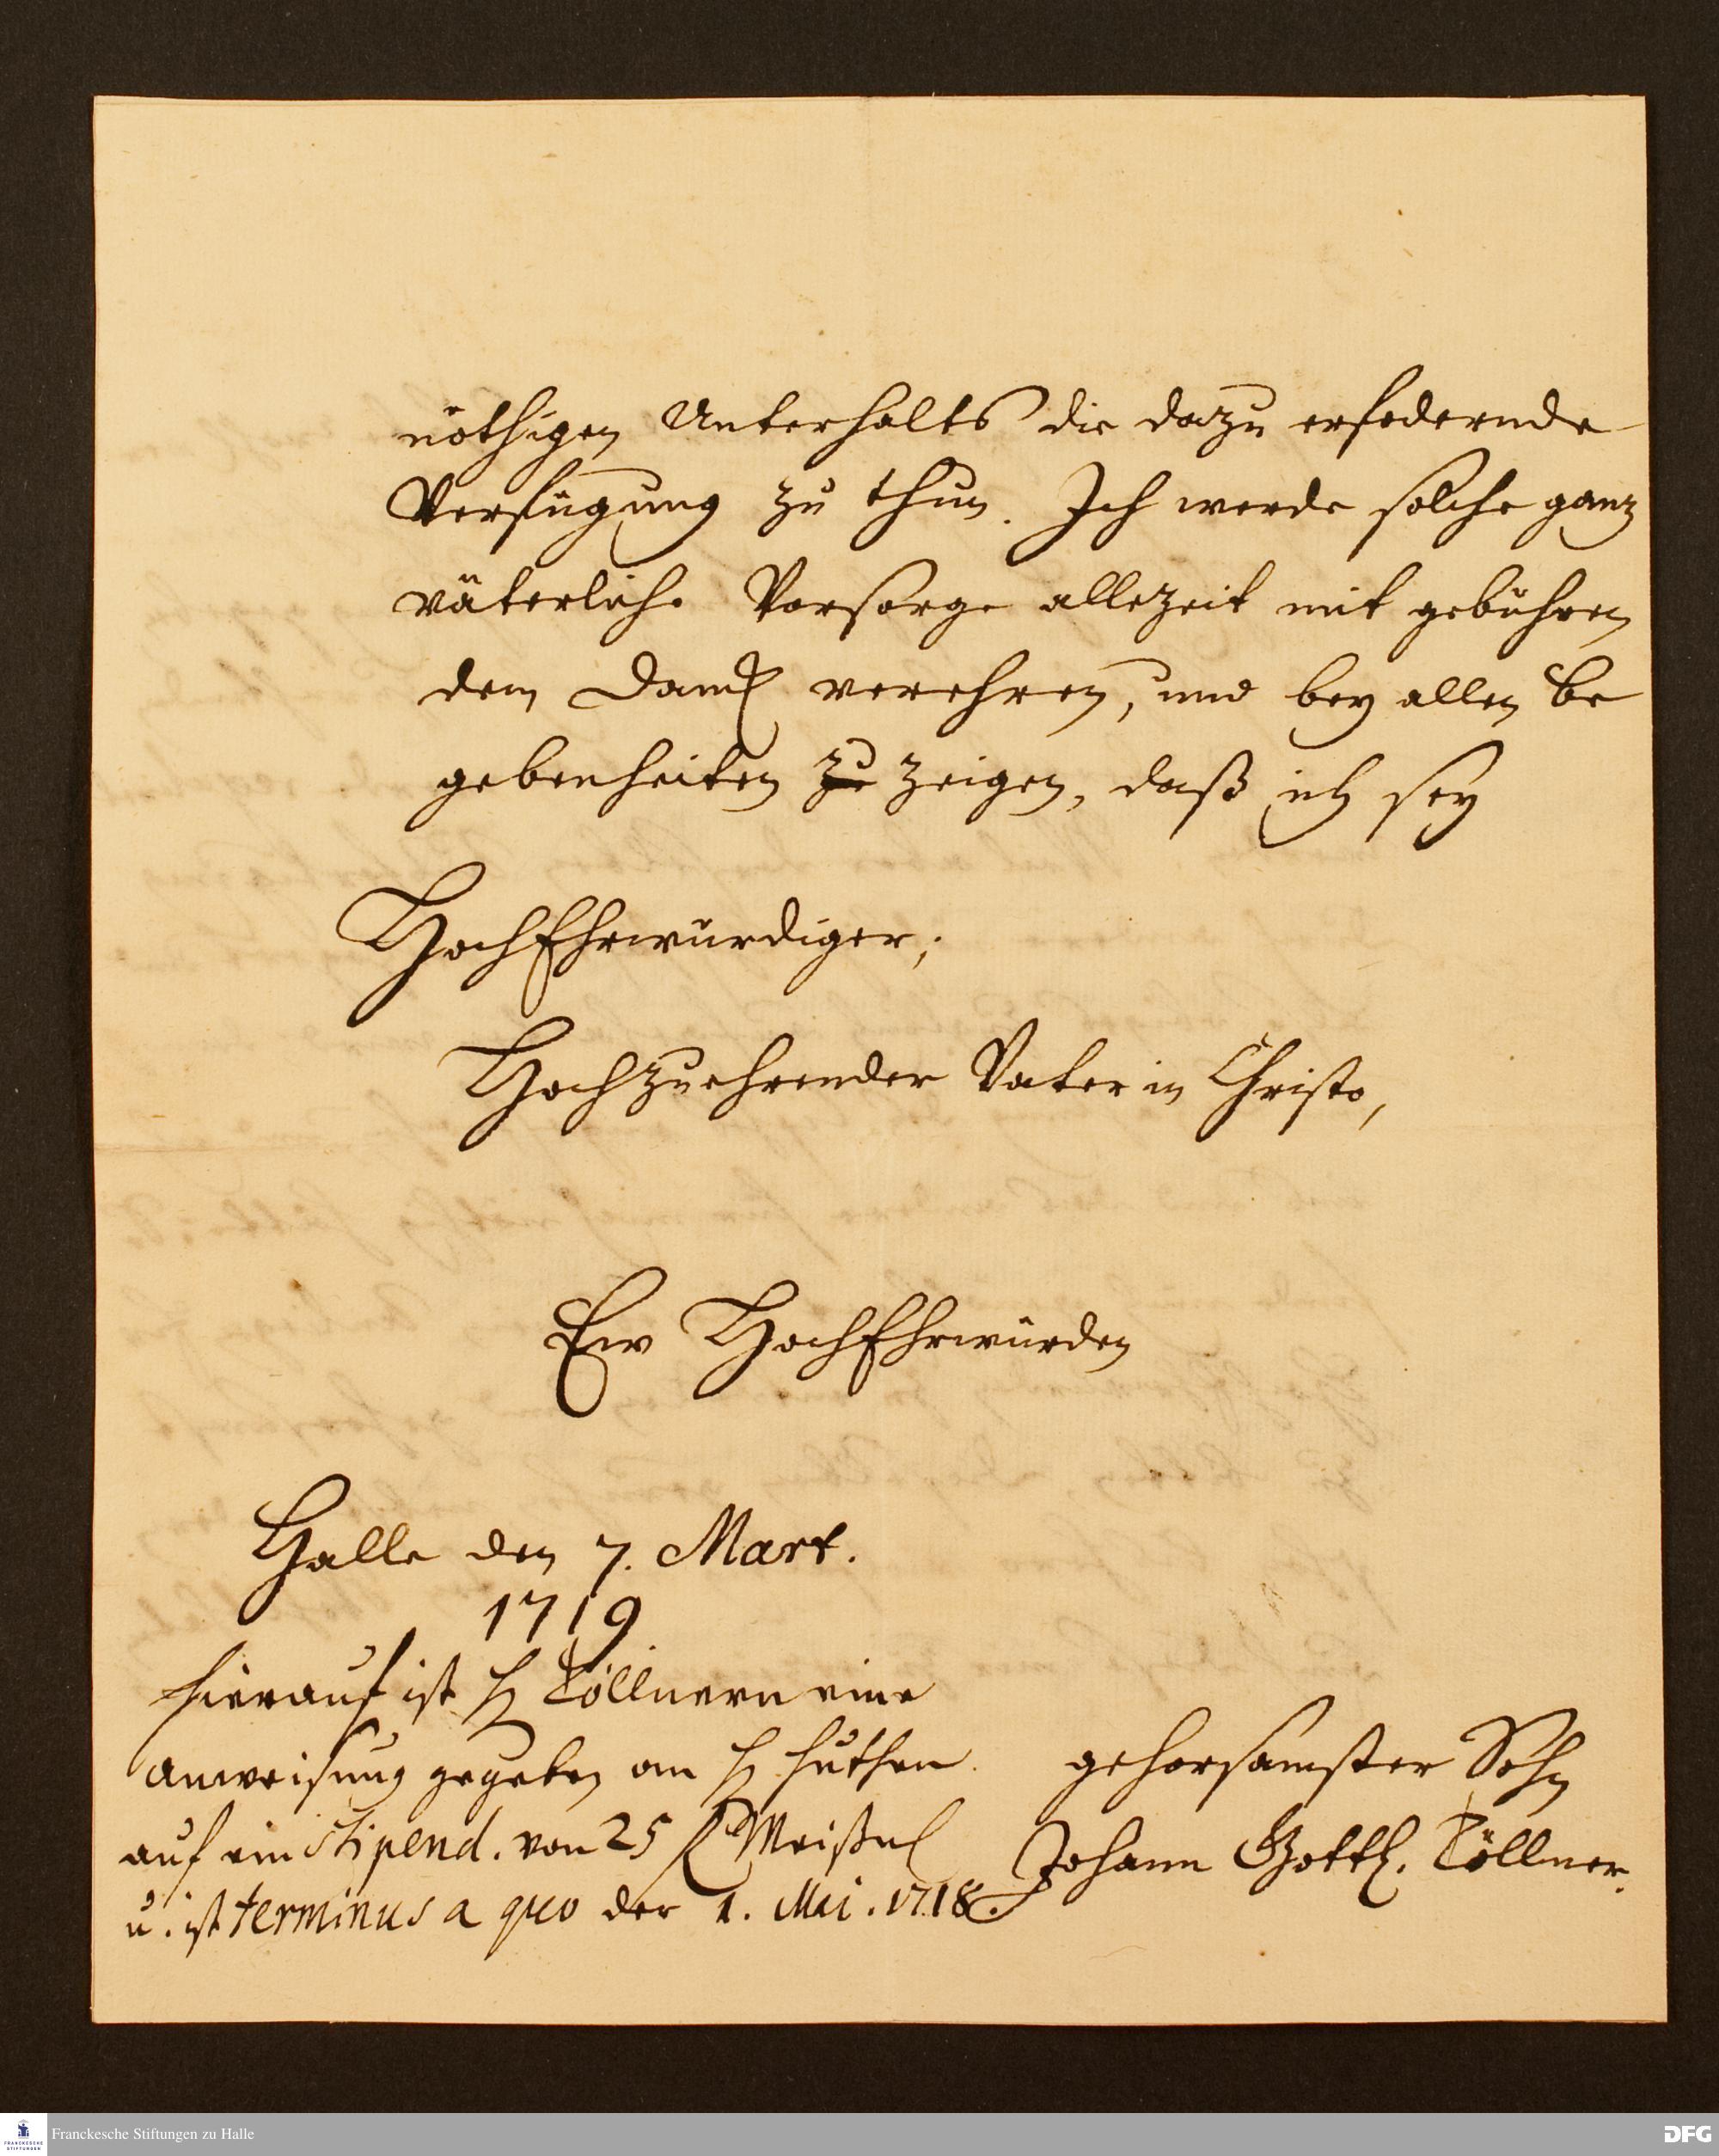 nöthigen Unterhalts die dazu erfodernde
Verfügung zu thun. Ich werde solche ganz
väterliche Vorsorge allezeit mit gebühren
dem Danck verehren, und bey allen be
gebenheiten zu zeigen, daß ich sey
HochEhrwürdiger,
Hochzuehrender Vater in Christo,
Ew HochEhrwürden
Halle den 7. Mart.
1719
hierauf ist H Töllnern eine
anweisung gegeben an H huthen
auf ein Stipend. von 25
u. ist terminus a quo der 1. Mai. 1718.
gehorsamster Sohn
Johann Gottl. Töllner.
Franckesche Stiftungen zu Halle
FRANCKESCHE STIFTUNGEN
DFG